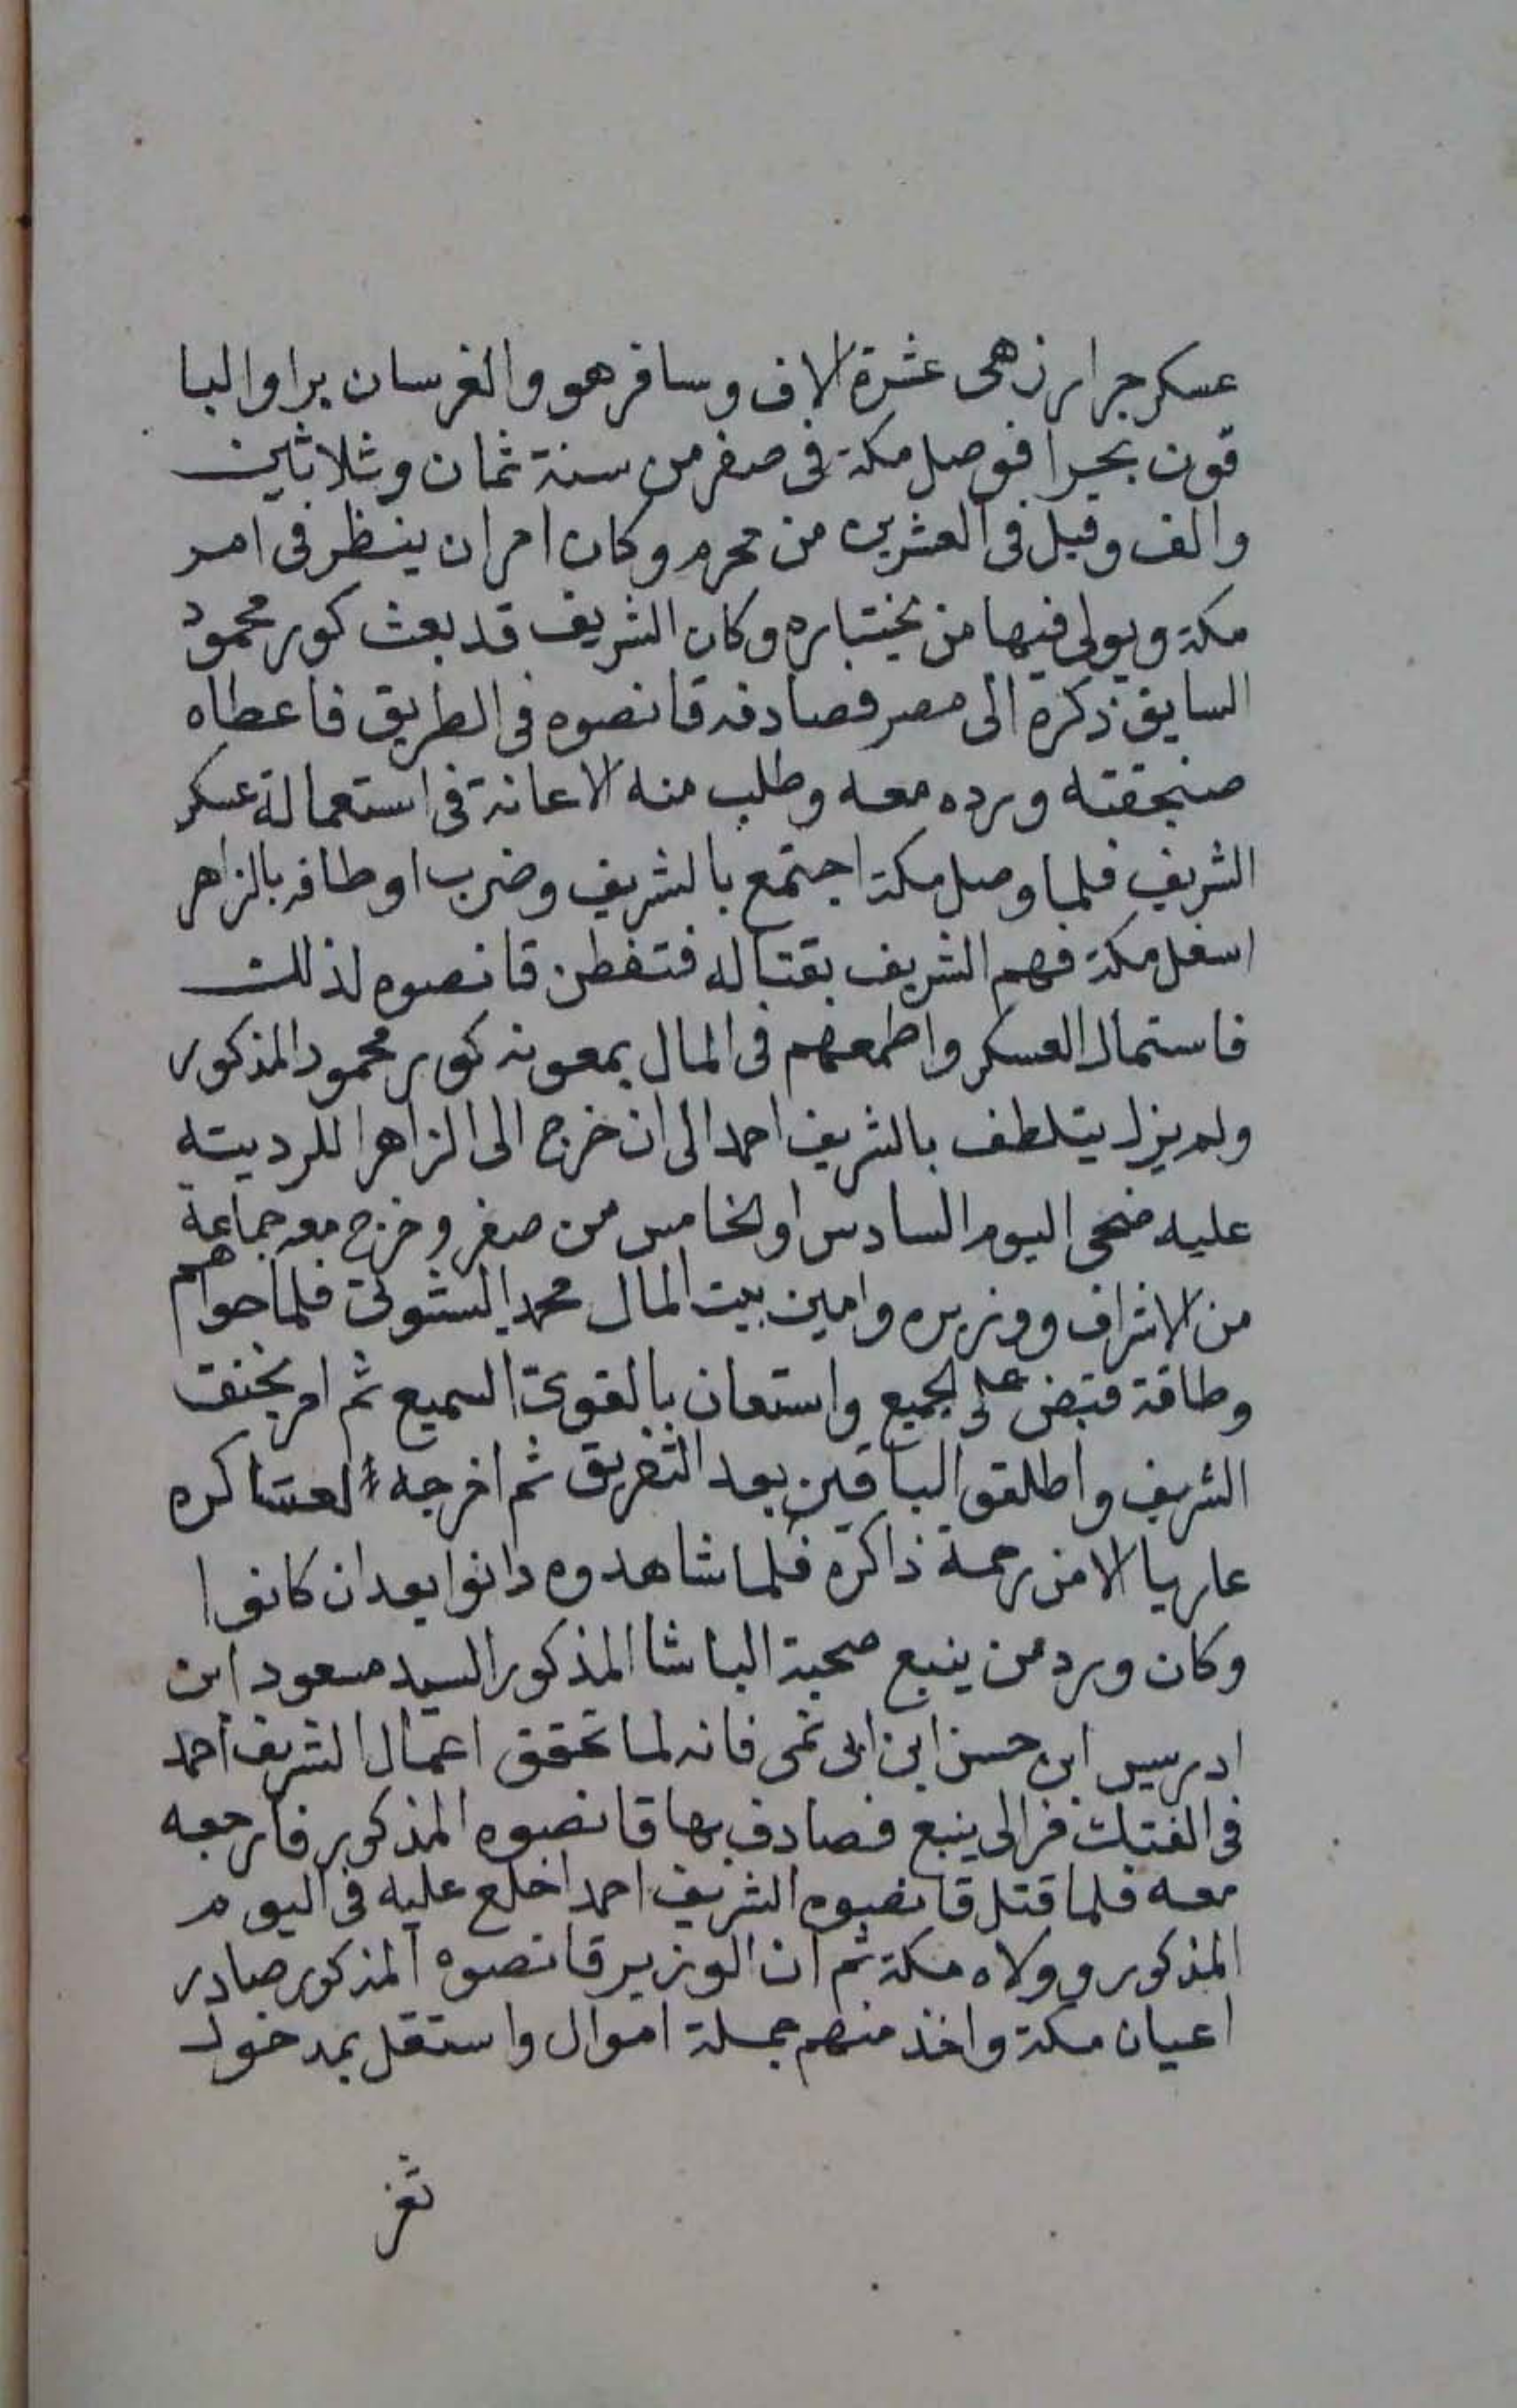 عسكر جرار زهى عشرة الاف وسافر هو والفرسان برا والبا
قون بحرا فوصل مكة فى صفر من سنة ثمان وثلاثين
والف وقيل فى العشرين من محرم وكان امر ان ينظر فى امر
مكة ويولى فيها من يختاره وكان الشريف قد بعث كور محمود
السابق ذكره الى مصر فصادفه قانصوه فى الطريق فاعطاه
صنجقته ورده معه وطلب منه الاعانة فى استمالة عسكر
الشريف فلما وصل مكة اجتمع بالشريف وضرب اوطاقه بالزاهر
اسفل مكة فهم الشريف بقتاله فتفطن قانصوه لذلك
فاستمال العسكر واطمعهم فى المال بمعونة كور محمود المذكور
ولم يزل يتلطف بالشريف احمد الى ان خرج الى الزاهر للرديته
عليه ضحى اليوم السادس او الخامس من صفر وخرج معه جماعة
من الاشراف ووزيره وامين بيت المال محمد الشتوتى فلما حواهم
وطاقة فقبض على الجميع واستعان بالقوى السميع ثم امر بخنق
الشريف واطلقو الباقين بعد التفريق ثم اخرجه لعساكره
عاريا الا من رحمة ذاكرة فلما شاهدوه دانوا بعد ان كانوا
وكان ورد من ينبع صحبة الباشا المذكور السيد مسعود ابن
ادريس ابن حسن ابن ابى نمى فانه لما تحقق اعمال الشريف احمد
فى الفتك فر الى ينبع فصادف بها قانصوه المذكور فارجعه
معه فلما قتل قانصوه الشريف احمد اخلع عليه فى اليوم
المذكور وولاه مكة ثم ان الوزير قانصوه المذكور صادر
اعيان مكة واخذ منهم جملة اموال واستقل بمدخول
تغز